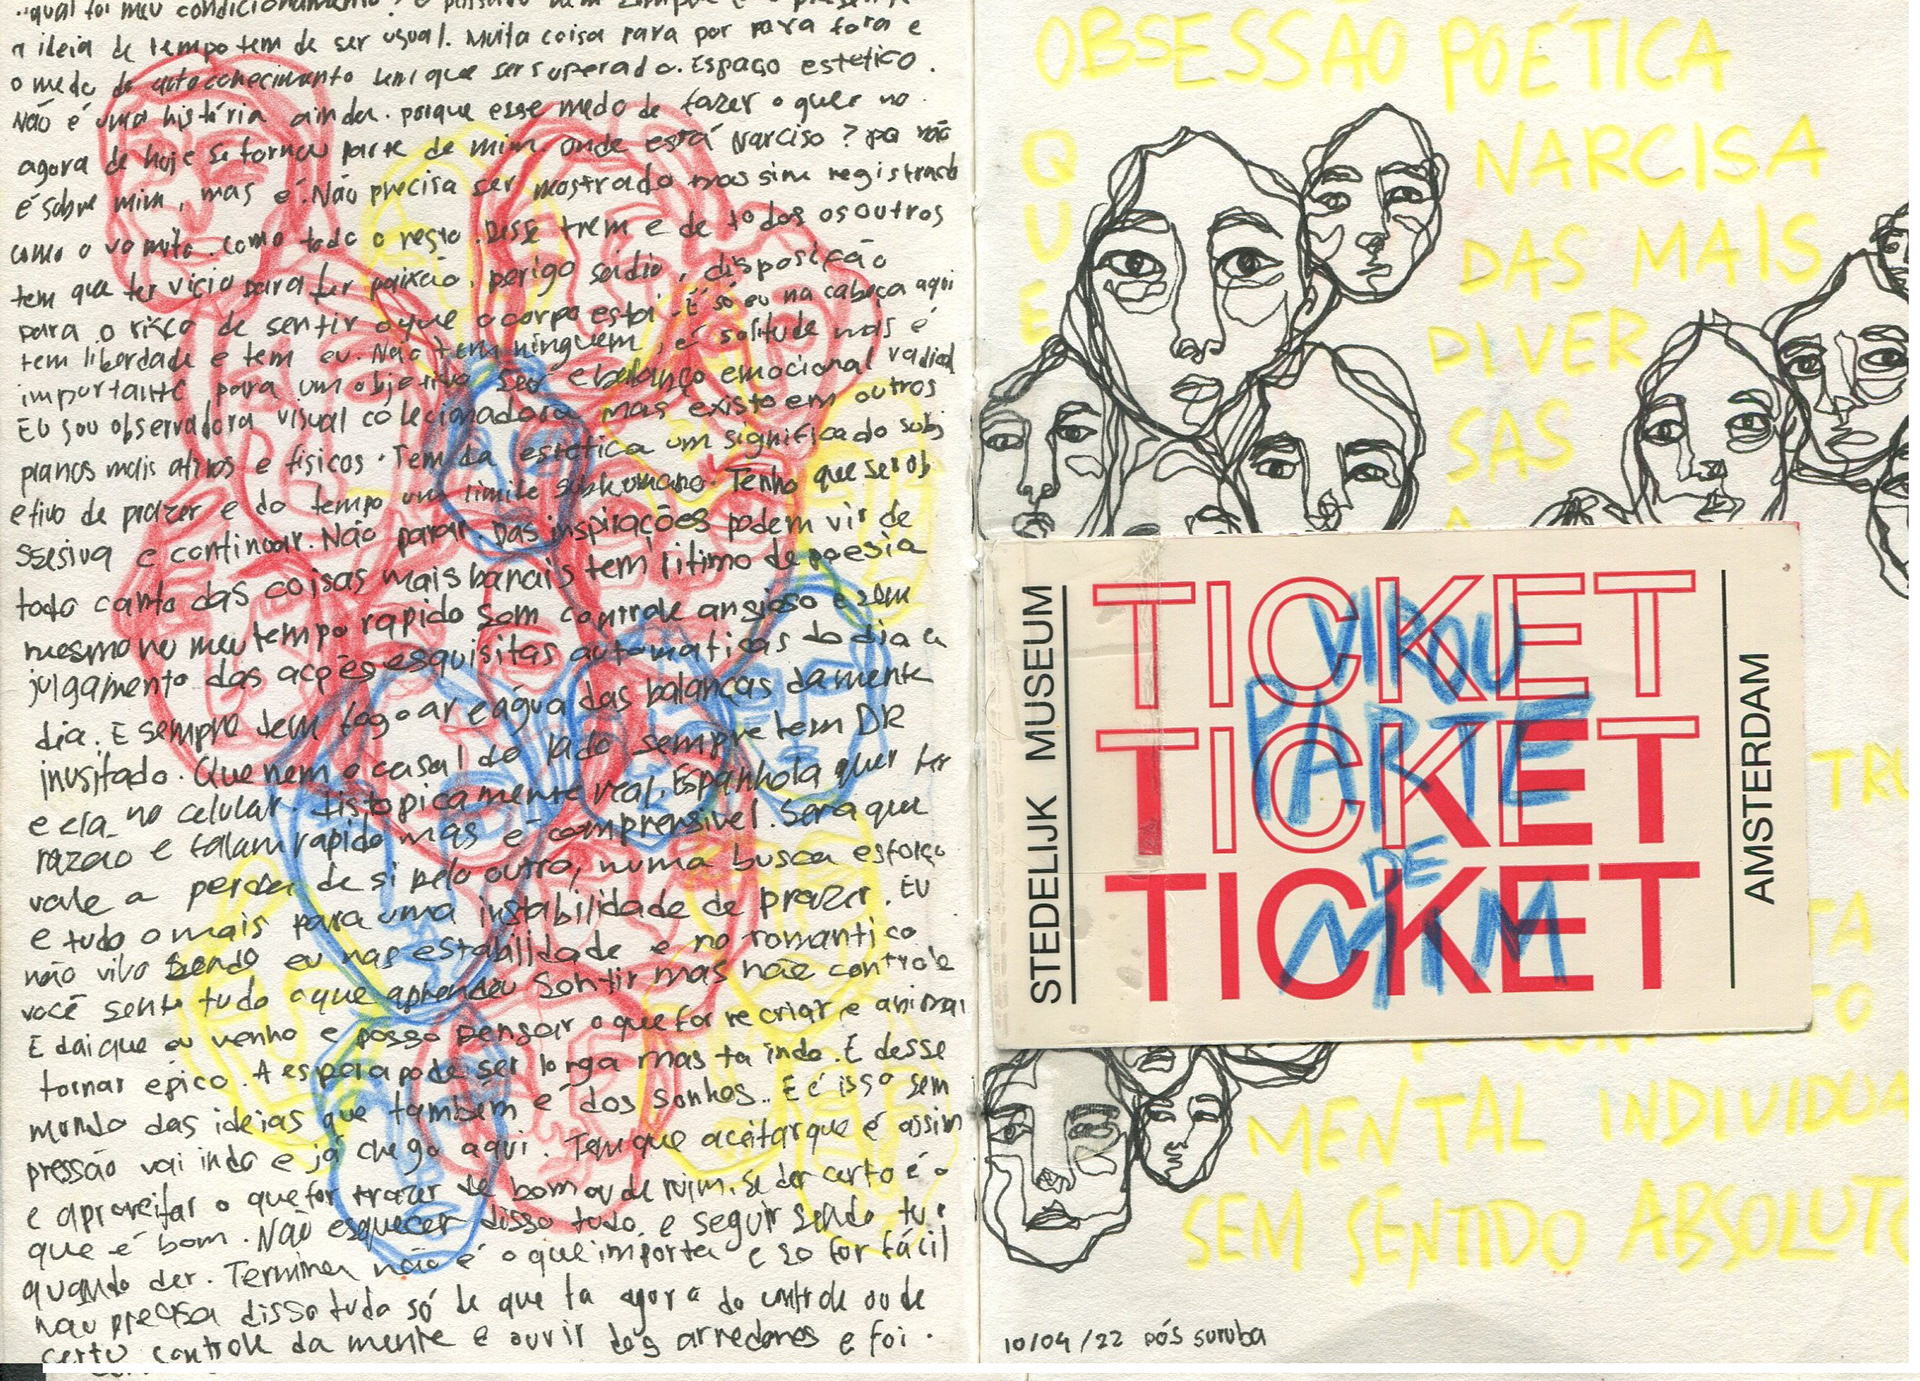 ..qual foi meu condicionamento? o passado nem sempre é o presente
a ideia de tempo tem de ser usual. Muita coisa para por para fora e
o medo do autoconhecimento tem que ser superado. Espaço estetico.
Não é uma história ainda. porque esse medo de fazer o quer no
agora de hoje se tornou parte de mim onde está Narciso? não
é sobre mim, mas é. Não precisa ser mostrado mas sim registrado
como o vomito. como todo o resto. Desse trem e de todos os outros
tem que ter vicio para ter paixão, perigo sadio, disposição
para o risco de sentir oque o corpo está. É só eu na cabeça aqui
tem liberdade e tem eu. Não tem ninguem, é solitude mas é
importante para um objetivo. Ser e balanço emocional
Eu sou observadora visual colecionadora mas existo em outros
planos mais ativos e fisicos. Tem da estética um significado subj
etivo de prazer e do tempo um limite subhumano. Tenho que ser ob
ssesiva e continuar. Não parar. Das inspirações podem vir de
todo canto das coisas mais banais tem ritimo de poesia
mesmo no meu tempo rapido sem controle ansioso e sem
julgamento das acpões esquisitas automaticas do dia a
dia. E sempre tem fogo ar e água das balanças da mente
inusitado. Que nem o casal do lado sempre tem DR
e ela no celular distopicamente real. Espanhola quer ter
razao e falam rapido mas é comprensivel. Sera que
vale a perda de si pelo outro, numa busca esforço
e tudo o mais para uma instabilidade de prazer. Eu
não vivo sendo eu nas estabilidade e no romantico
você sente tudo oque aprendeu sentir mas não controle
E dai que eu venho e posso pensar o que for recriar e animar
tornar epico. A espera pode ser longa mas ta indo. E desse
mundo das ideias que também é dos sonhos.. E é isso sem
pressão vai indo e já chego aqui. Tem que aceitar que é assim
e aproveitar o que for trazer de bom ou de ruim. Se der certo é o
que é bom. Não esquecer disso tudo. e seguir sendo
quando der. Terminar não é o que importa e so for fácil
nau precisa disso tudo só de que ta agora do controle ou de
certo controle da mente e ouvir dos arredores e foi.
OBSESSÃO POÉTICA
QUE
NARCISA
DAS MAIS
DIVER
SAS
STEDELIJK MUSEUM
TICKET
TICKET
TICKET
AMSTERDAM
VIROU
PARTE
DE
MIM
MENTAL INDIVIDUA
SEM SENTIDO ABSOLUTO
10/04/22 pós suruba